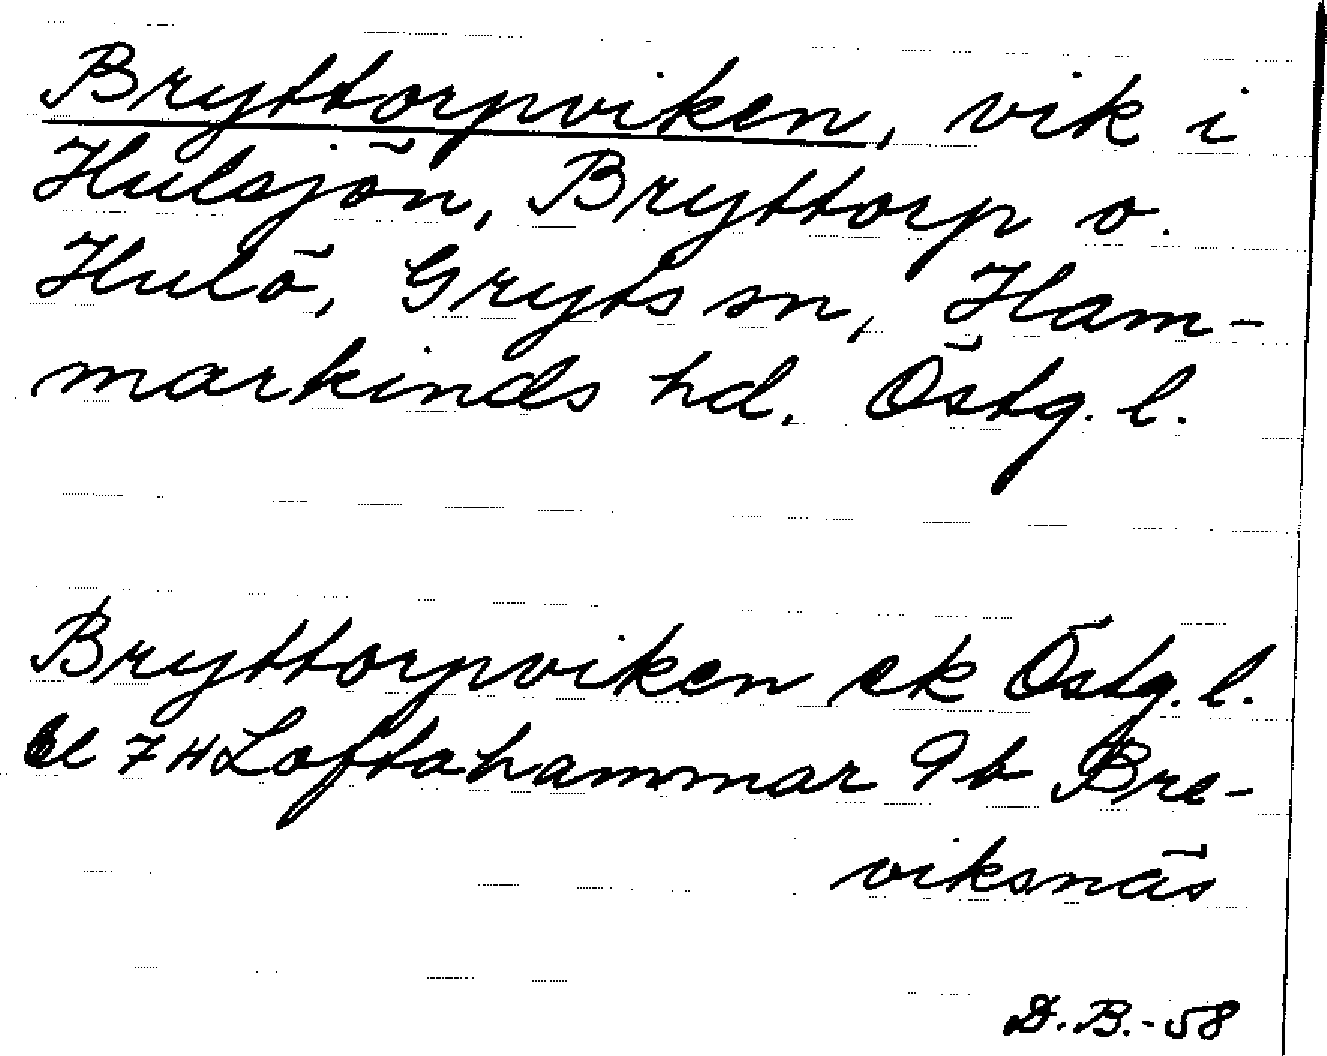 Bryttorpviken, vik i
Hulsjön, Bryttorp o.
Hulö, Gryts sn, Ham-
markinds hd. Östg. l.
Bryttorpviken ek Östg. l.
bl 7 H Loftahammar 9b Bre-
viksnäs
D.B.-58